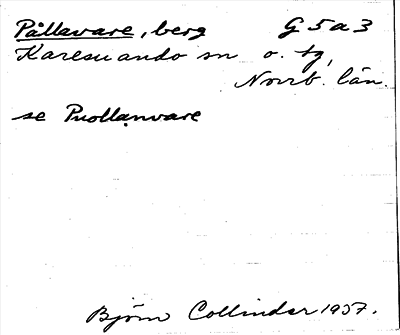 Pållavare, berg G 5 a 3
Karesuando sn o. tg,
Norrb. län.
se Puollanvare
Björn Collinder 1957.